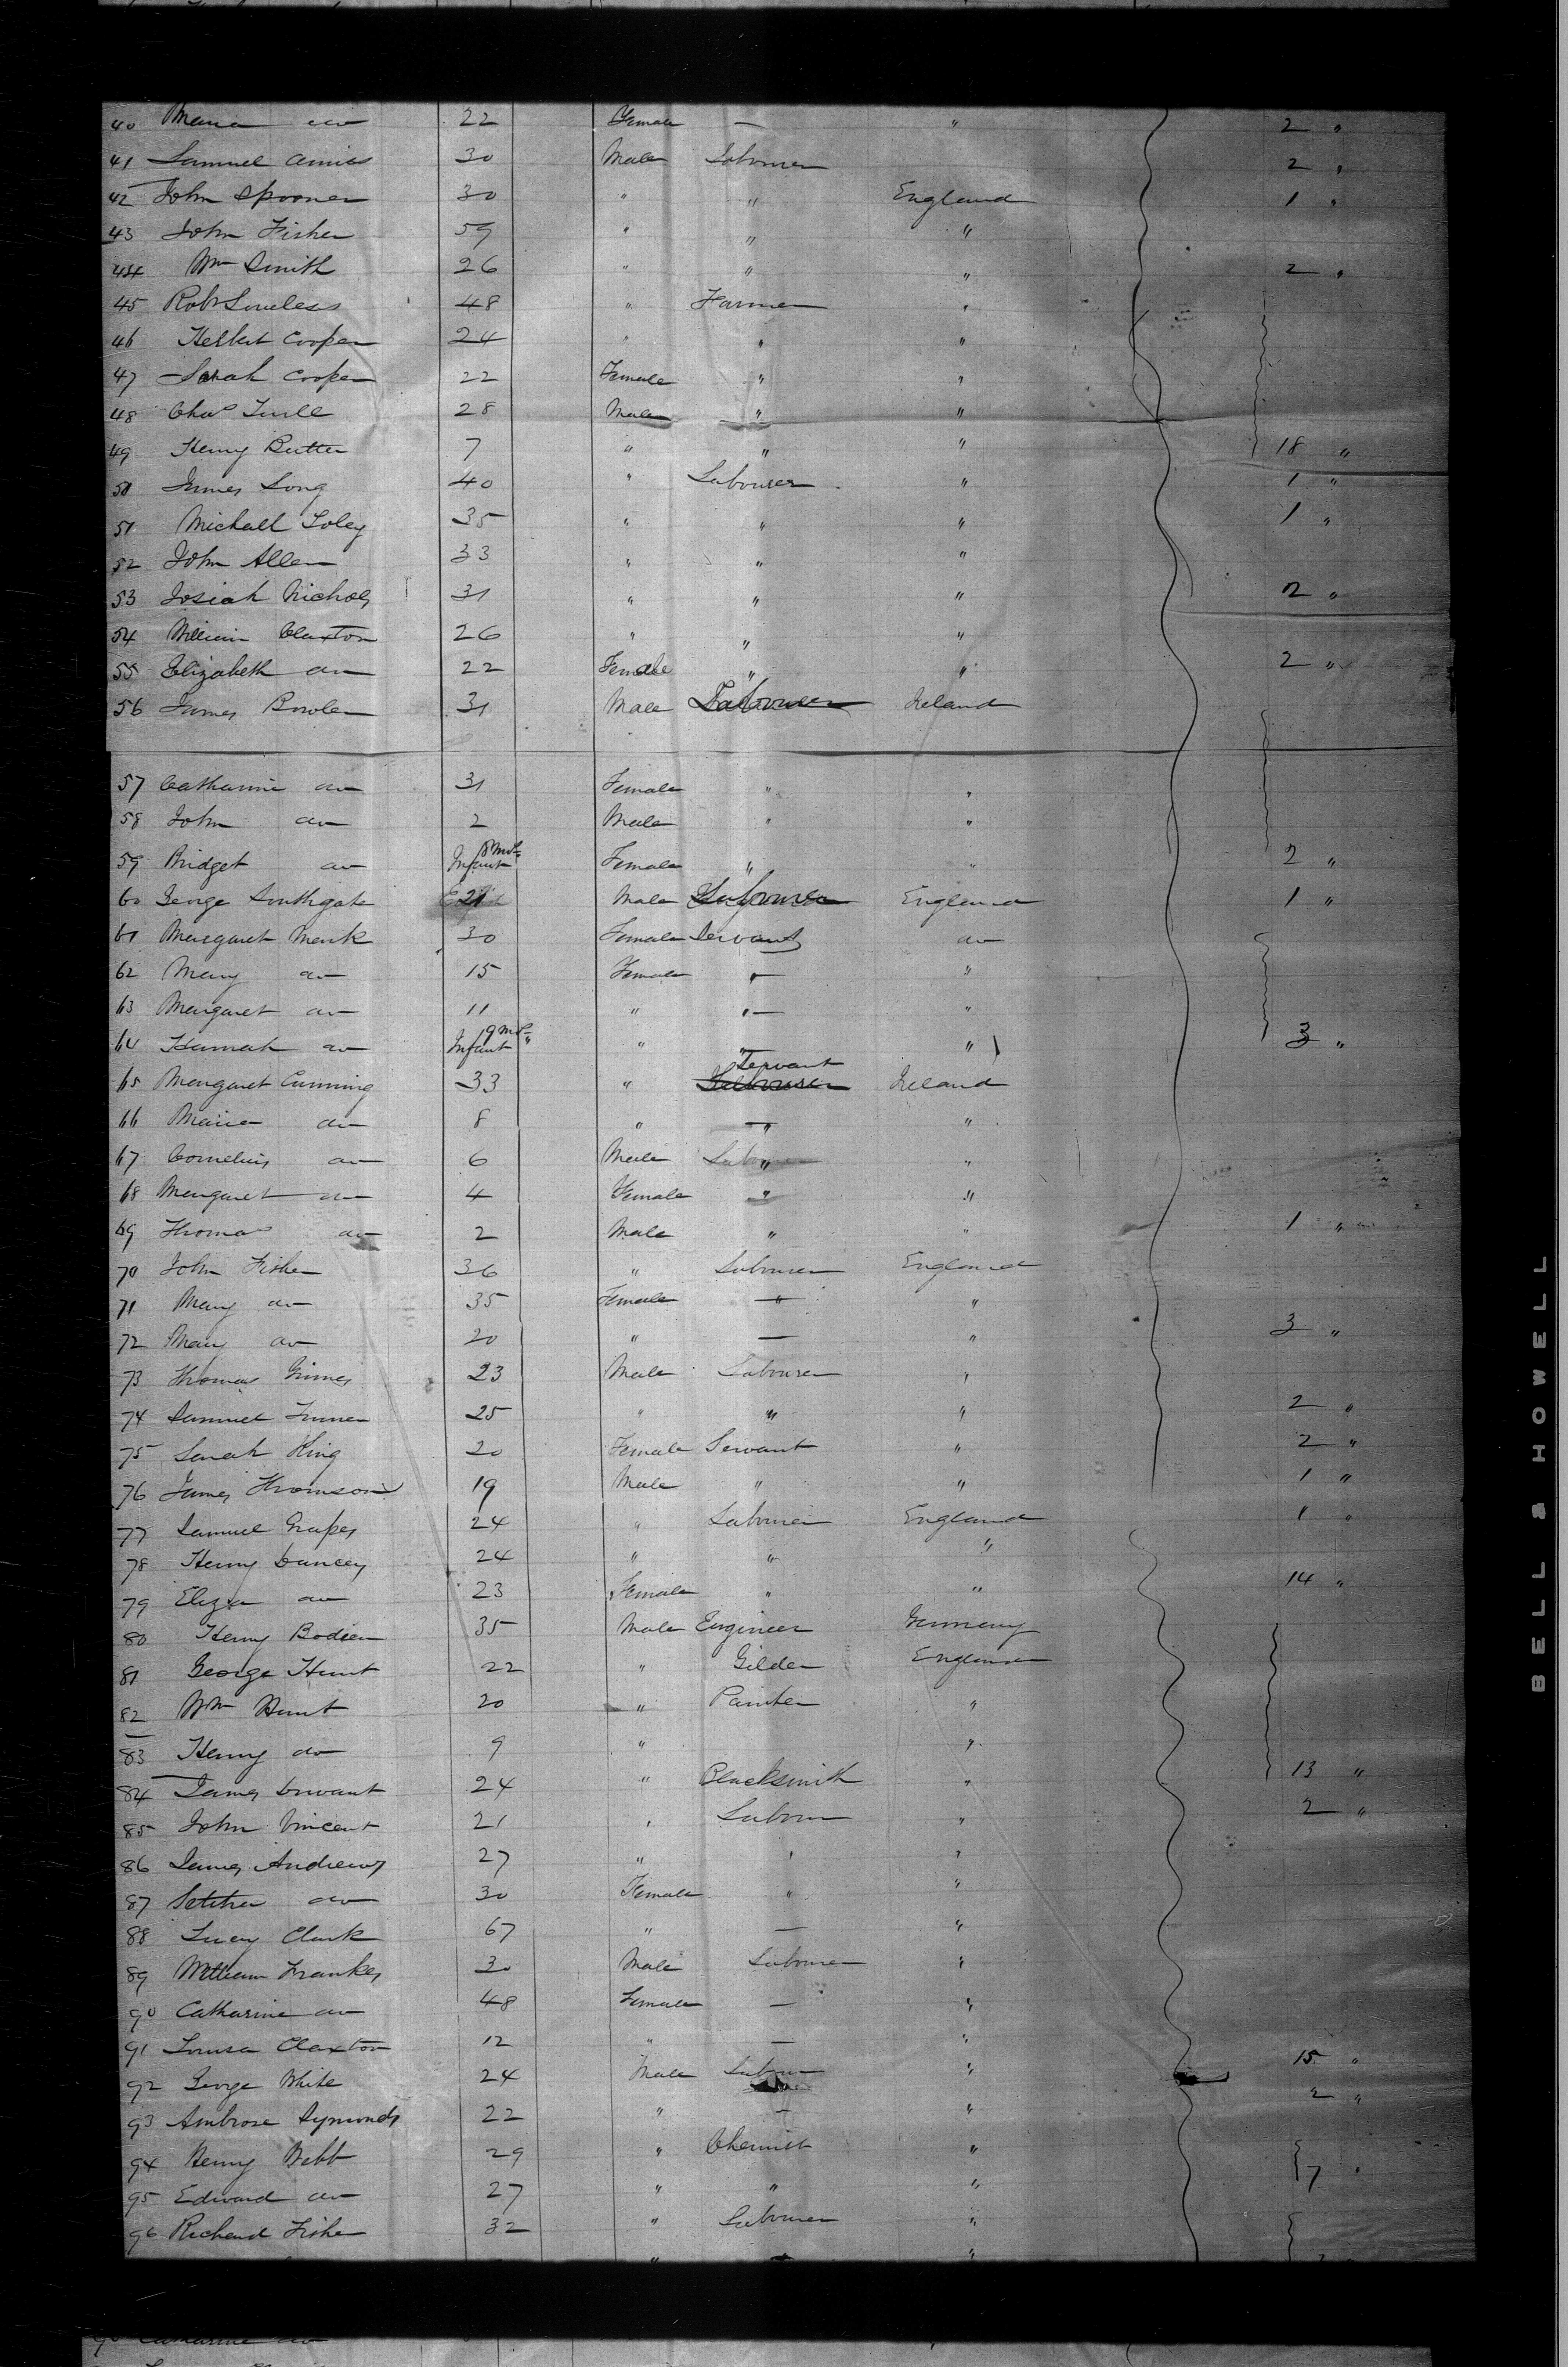 40 Maria do 22 Female — " 2 "
41 Samuel Amies 30 Male Labourer 2 "
42 John Spooner 30 " " England 1 "
43 John Fisher 59 " " "
44 Wm Smith 26 " " " 2 "
45 Robt Loveless 48 " Farmer "
46 Herbert Cooper 24 " " "
47 Sarah Cooper 22 Female " "
48 Chas 28 Male " "
49 Henry Butter 7 " " " 18 "
50 James Long 40 " Labourer " 1 "
51 Michall Foley 35 " " " 1 "
52 John Allen 33 " " "
53 Josiah Nichols 31 " " " 2 "
54 William Claxton 26 " " "
55 Elizabeth do 22 Female " " 2 "
56 James Bowler 31 Male Labourer Ireland
57 Catharine do 31 Female " "
58 John do 2 Male " "
59 Bridget do Infant 8 Mos Female " " 2 "
60 George Southgate 21 Male Labourer England 1 "
61 Margaret Mark 30 Female Servant do
62 Mary do 15 Female " "
63 Margaret do 11 " " — "
64 Hannah do Infant 9 Mos " " " " 3 "
65 Margaret Cunning 33 " Labourer Servant Ireland
66 Maria do 8 " " "
67 Cornelius do 6 Male " "
68 Margaret do 4 Female " "
69 Thomas do 2 Male " " 1 "
70 John Fisher 36 " Labourer England
71 Mary do 35 Female " "
72 Mary do 20 " — " 3 "
73 Thomas Grimes 23 Male Labourer "
74 Samuel Turner 25 " " " 2 "
75 Sarah King 20 Female Servant " 2 "
76 James Thomson 19 Male " " 1 "
77 Samuel Grapes 24 " Labourer England 1 "
78 Henry Dancey 24 " " "
79 Eliza do 23 Female " " 14 "
80 Henry Bodien 35 Male Engineer Germany
81 George Hunt 22 " Gilder England
82 Wm Hunt 20 " Painter "
83 Henry do 9 " "
84 James Durrant 24 " Blacksmith " 13 "
85 John Vincent 21 " Labour " 2 "
86 James Andrews 27 " " "
87 do 30 Female " "
88 Lucy Clark 67 " — "
89 William Franks 30 Male Labourer "
90 Catharine do 48 Female — "
91 Louisa Claxton 12 " — " 15 "
92 George White 24 Male Labour " 2 "
93 Ambrose Symonds 22 " — "
94 Henry Webb 29 " Chemist " 7 "
95 Edward do 27 " " "
96 Richard Fisher 32 " Labourer "
BELL & HOWELL